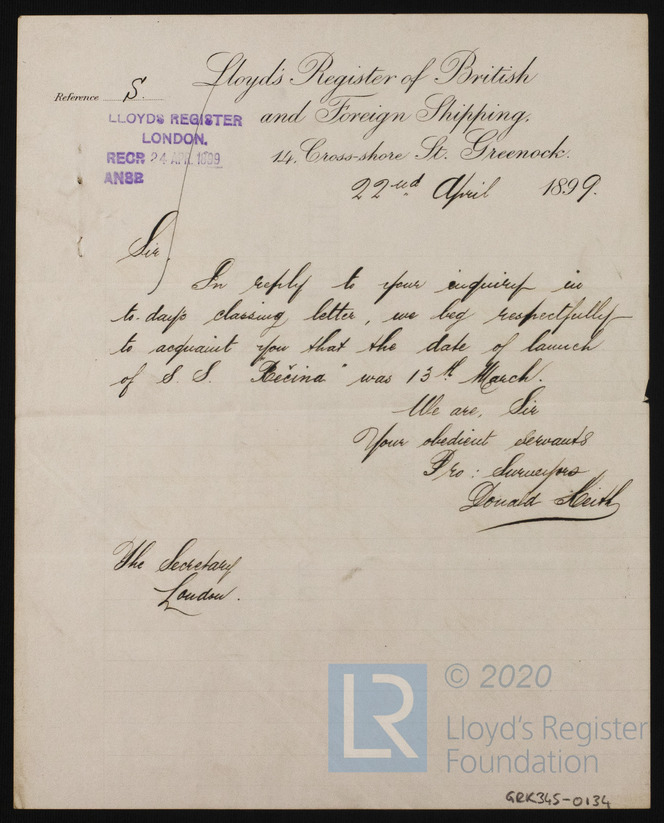 Lloyd's Register of British
Reference S.
and Foreign Shipping.
LLOYDS REGISTER
LONDON.
14, Cross-shore St. Greenock.
RECR 24 APR. 1899
ANSR
22nd April 1899.
Sir,
In reply to your inquiry in
to-day's classing letter, we beg respectfully
to acquaint you that the date of launch
of S. S. "Rečina" was 13th March.
We are, Sir
Your obedient servants
Pro: Surveyors
Donald Keith
The Secretary
London.
LR
© 2020
Lloyd's Register
Foundation
GRK345-0134